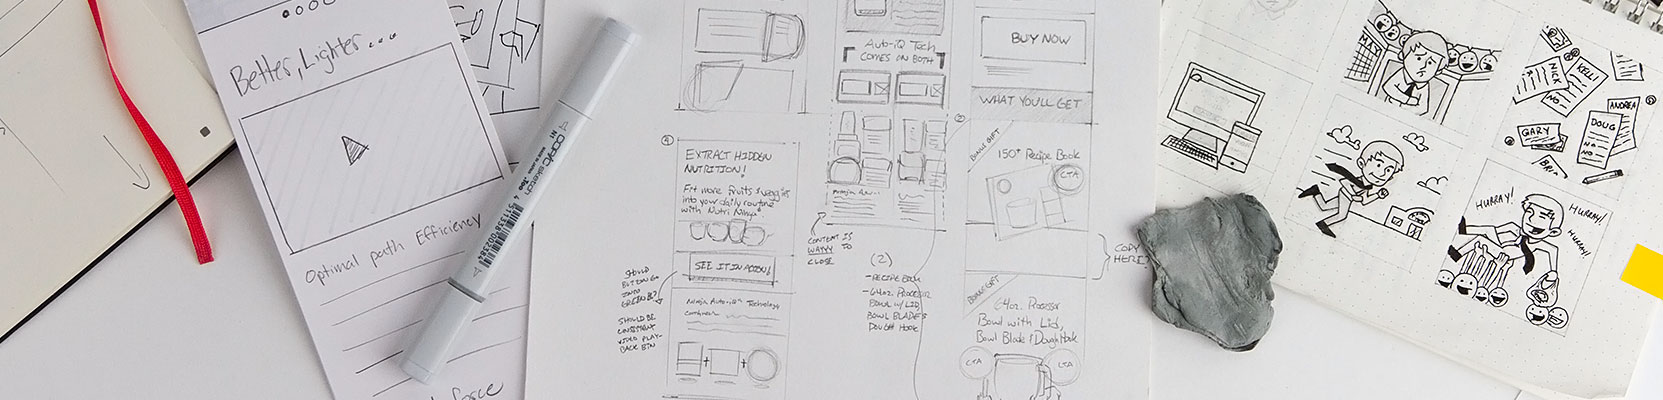 Better, Lighter...
Optimal path Efficiency
force
COPIC sketch
N1
.Too
EXTRACT HIDDEN
NUTRITION!
Fit more fruits & veggies
into your daily routine
with Nutri Ninja®
SEE IT IN ACTION!
Ninja Auto-iQ™ Technology
combines
SHOULD
BUTTON GO
INTO
GREEN BG?
SHOULD BE
CONSISTENT
VIDEO PLAY-
BACK BTN
Auto-iQ Tech
COMES ON BOTH
CONTENT IS
WAYYY TO
CLOSE
(2)
- RECIPE BOOK
- 64oz. PROCESSOR
BOWL W/ LID,
BOWL BLADE &
DOUGH HOOK
BUY NOW
WHAT YOU'LL GET
BONUS GIFT
150+ Recipe Book
CTA
COPY
HERE!
BONUS GIFT
64oz. Processor
Bowl with Lid,
Bowl Blade & Dough Hook
CTA
CTA
NICK
NO
KELLI
ANDREA
GARY
DOUG
NO
NO
HURRAY!
HURRAY!
HURRAY!